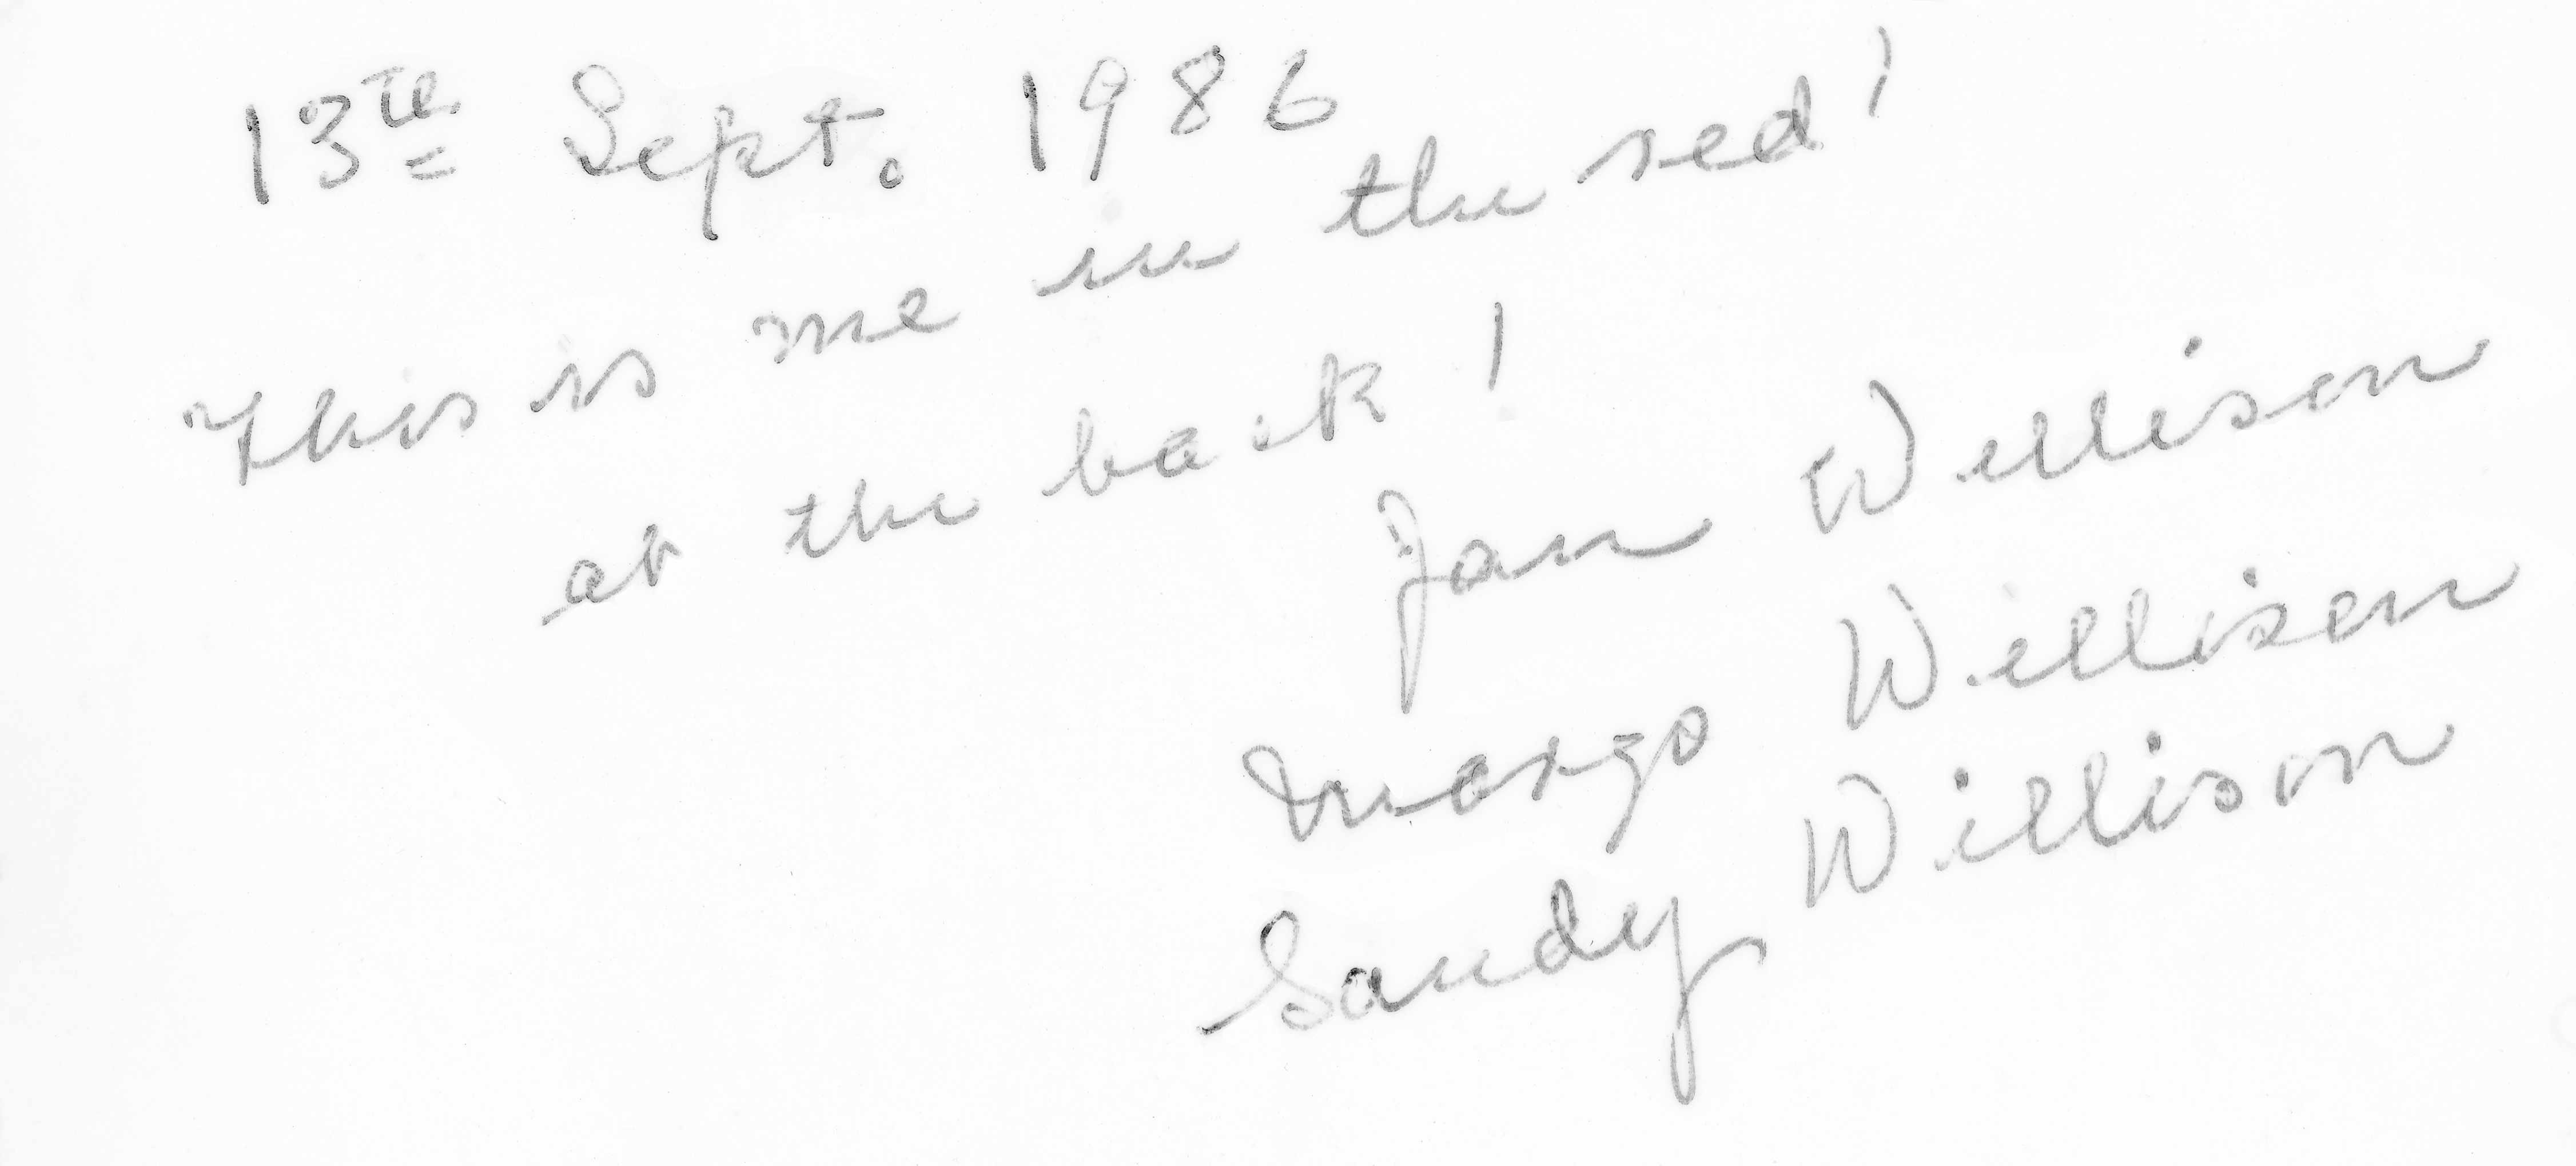 13th Sept. 1986
This is me in the red!
at the back!
Jan Willison
Margo Willison
Sandy Willison